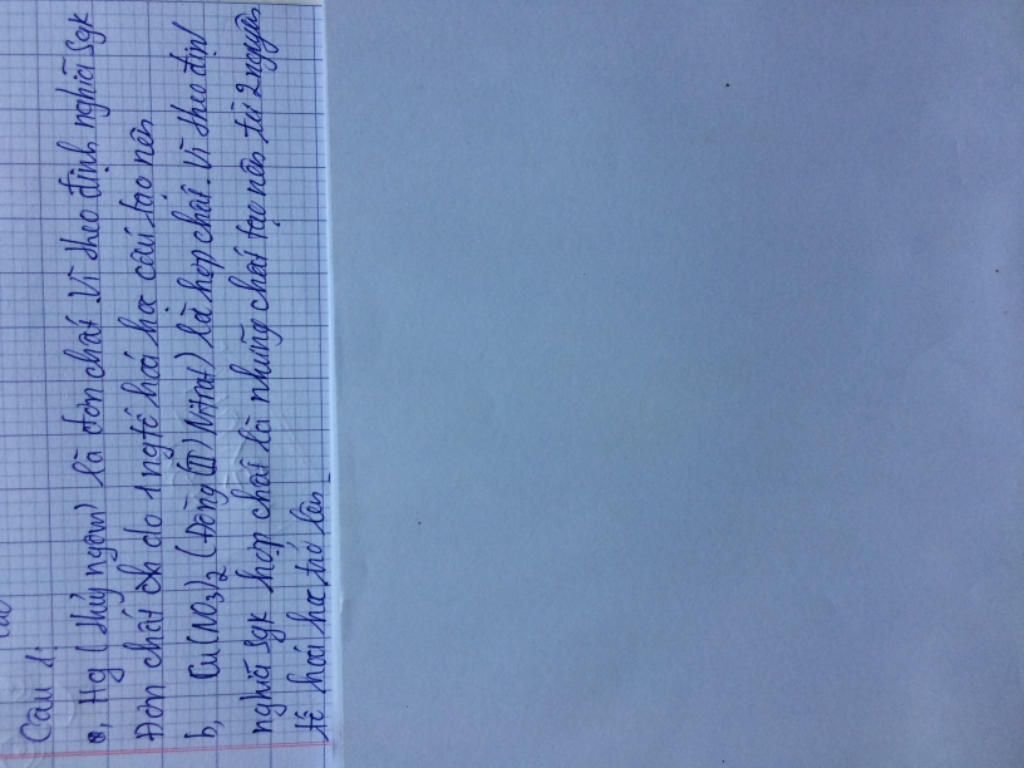 Câu 1:
a, Hg (thủy ngân) là đơn chất. Vì theo định nghĩa sgk
Đơn chất do 1 ngtố hoá học cấu tạo nên
b, Cu(NO3)2 (Đồng (II) Nitrat) là hợp chất. Vì theo định
nghĩa sgk hợp chất là những chất tạo nên từ 2 nguyên
tố hoá học trở lên